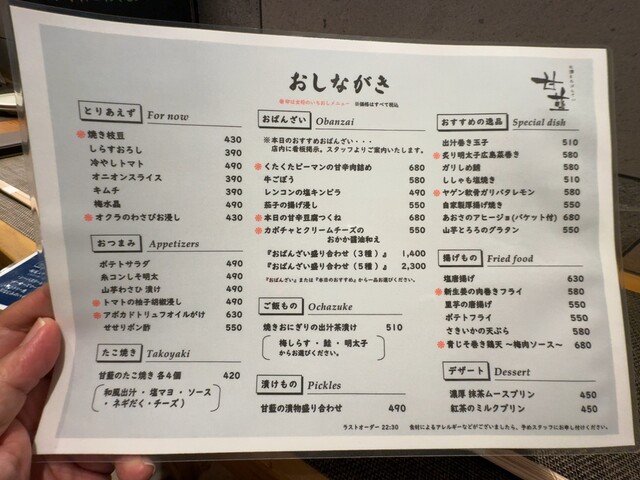 おしながき
※印は当店のいちおしメニュー ※価格はすべて税込
甘藍
とりあえず For now
※焼き枝豆 430
しらすおろし 390
冷やしトマト 490
オニオンスライス 390
キムチ 390
梅水晶 490
※オクラのわさびお浸し 430
おつまみ Appetizers
ポテトサラダ 490
糸コンしそ明太 490
山芋わさび漬け 490
※トマトの柚子胡椒浸し 490
※アボカドトリュフオイルがけ 630
せせりポン酢 550
たこ焼き Takoyaki
甘藍のたこ焼き 各4個 420
和風出汁・塩マヨ・ソース
・ネギだく・チーズ
おばんざい Obanzai
※本日のおすすめおばんざい・・・
店内に看板掲示。スタッフよりご案内いたします。
※くたくたピーマンの甘辛肉詰め 680
牛ごぼう 580
レンコンの塩キンピラ 490
茄子の揚げ浸し 550
※本日の甘辛豆腐つくね 680
※カボチャとクリームチーズの 550
おかか醤油和え
『おばんざい盛り合わせ(3種)』 1,400
『おばんざい盛り合わせ(5種)』 2,300
『おばんざい』または『本日のおすすめ』から一品お選びください。
ご飯もの Ochazuke
焼きおにぎりの出汁茶漬け 510
梅しらす・鮭・明太子
からお選びください。
漬けもの Pickles
甘藍の漬物盛り合わせ 490
おすすめの逸品 Special dish
出汁巻き玉子 510
※炙り明太子広島菜巻き 580
ガリしめ鯖 580
ししゃも塩焼き 510
※ヤゲン軟骨ガリバタレモン 580
自家製厚揚げ焼き 550
あおさのアヒージョ(バケット付) 680
山芋とろろのグラタン 550
揚げもの Fried food
塩唐揚げ 630
※新生姜の肉巻きフライ 580
里芋の唐揚げ 550
ポテトフライ 550
さきいかの天ぷら 580
※青じそ巻き鶏天 ～梅肉ソース～ 680
デザート Dessert
濃厚 抹茶ムースプリン 450
紅茶のミルクプリン 450
ラストオーダー 22:30 食材によるアレルギーなどがございましたら、予めスタッフにお申し付けください。